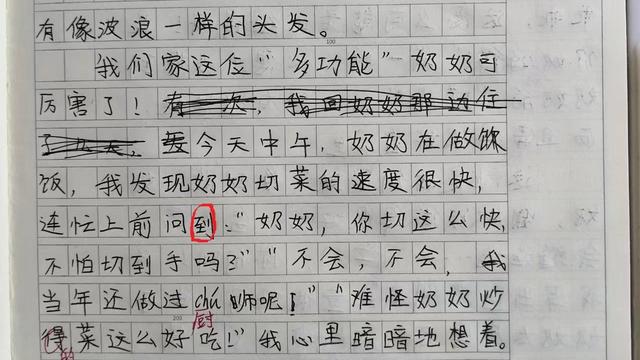 有像波浪一样的头发。
100
我们家这位“多功能”奶奶可
厉害了！有一次，我回奶奶那边住
了几天，今天中午，奶奶在做
饭，我发现奶奶切菜的速度很快，
连忙上前问到：“奶奶，你切这么快，
不怕切到手吗？”“不会，不会，我
当年还做过chú师呢！”“难怪奶奶炒
200 厨
得菜这么好吃！”我心里暗暗地想着。
的